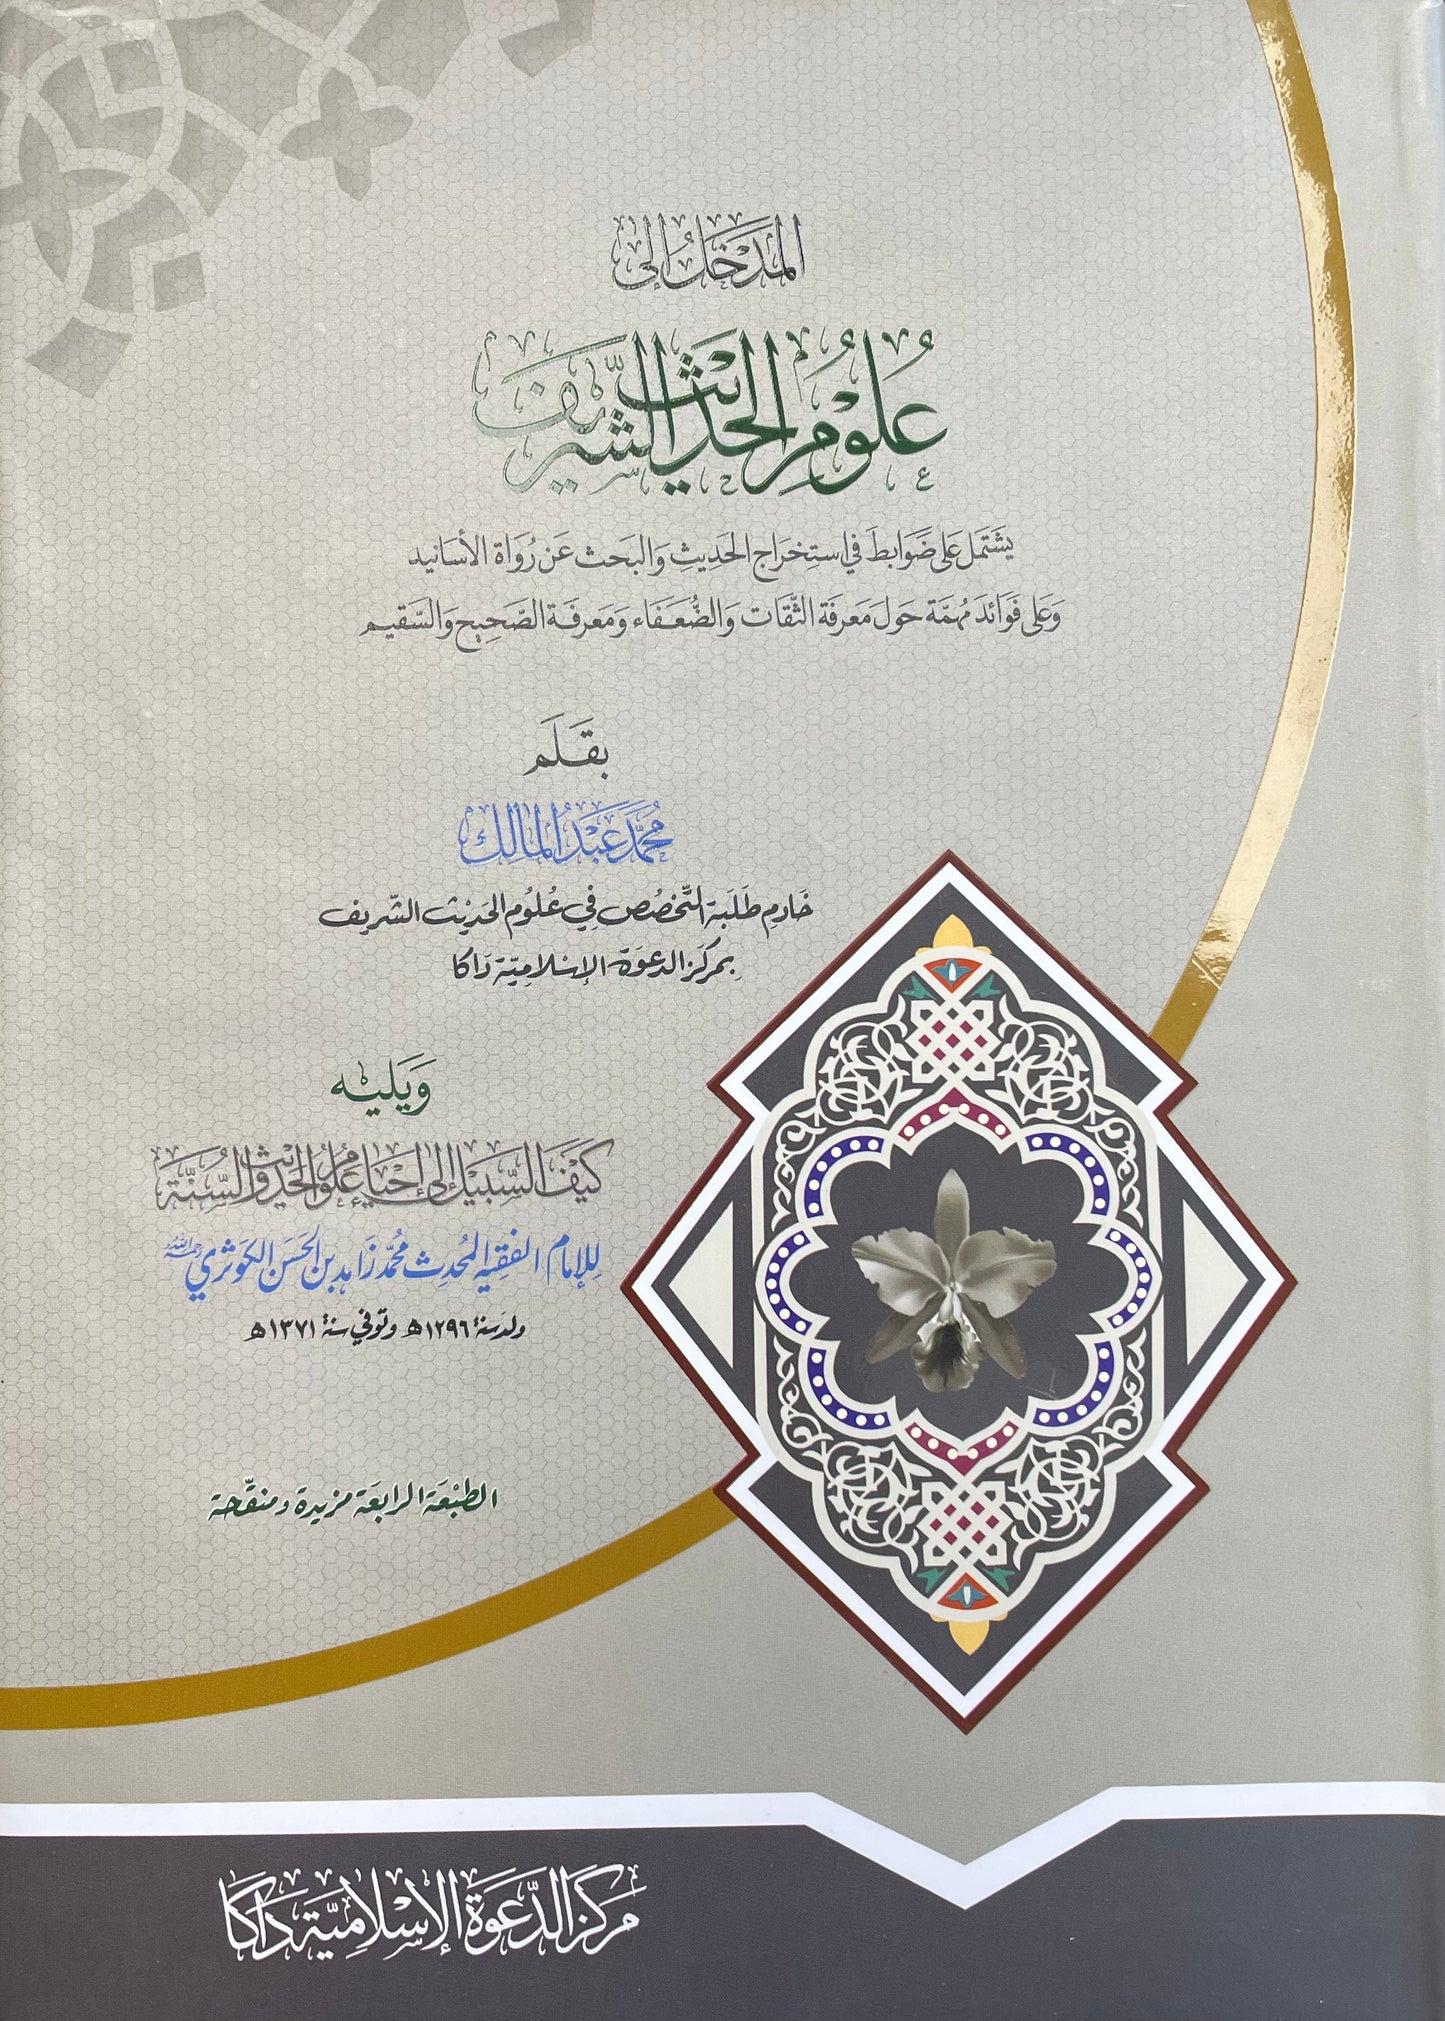 المدخل إلى
علوم الحديث الشريف
يشتمل على ضوابط في استخراج الحديث والبحث عن رواة الأسانيد
وعلى فوائد مهمة حول معرفة الثقات والضعفاء ومعرفة الصحيح والسقيم
بقلم
محمد عبد المالك
خادم طلبة التخصص في علوم الحديث الشريف
بمركز الدعوة الإسلامية داكا
ويليه
كيف السبيل إلى إحياء علوم الحديث والسنة
للإمام الفقيه المحدث محمد زاهد بن الحسن الكوثري رحمه الله
ولد سنة ١٢٩٦ه وتوفي سنة ١٣٧١ه
الطبعة الرابعة مزيدة ومنقحة
مركز الدعوة الإسلامية داكا